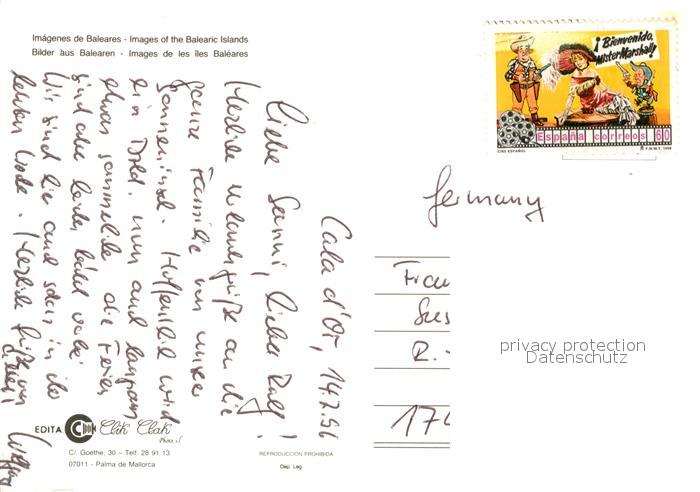 Imágenes de Baleares - Images of the Balearic Islands
Bilder aus Balearen - Images de les îles Baléares
¡ Bienvenido, Mister Marshall!
España correos 60
CINE ESPAÑOL
F.N.M.T. 1996
Cala d'Or, 14.7.96
Liebe Sanni, lieber Ralf!
Herzliche Urlaubsgrüße an die
ganze Familie von unserer
Sonneninsel. Hoffentlich wird
es in Dtld. nun auch langsam
etwas sommerlich, die Ferien
sind ja leider bald vorbei
Wir sind hier auch schon in der
letzten Woche. Herzliche Grüße von
Germany
Frau
Sus
R.
174
privacy protection
Datenschutz
EDITA Clik Clak
C/. Goethe, 30 – Telf. 28 91 13
07011 - Palma de Mallorca
REPRODUCCION PROHIBIDA
Dep. Leg.